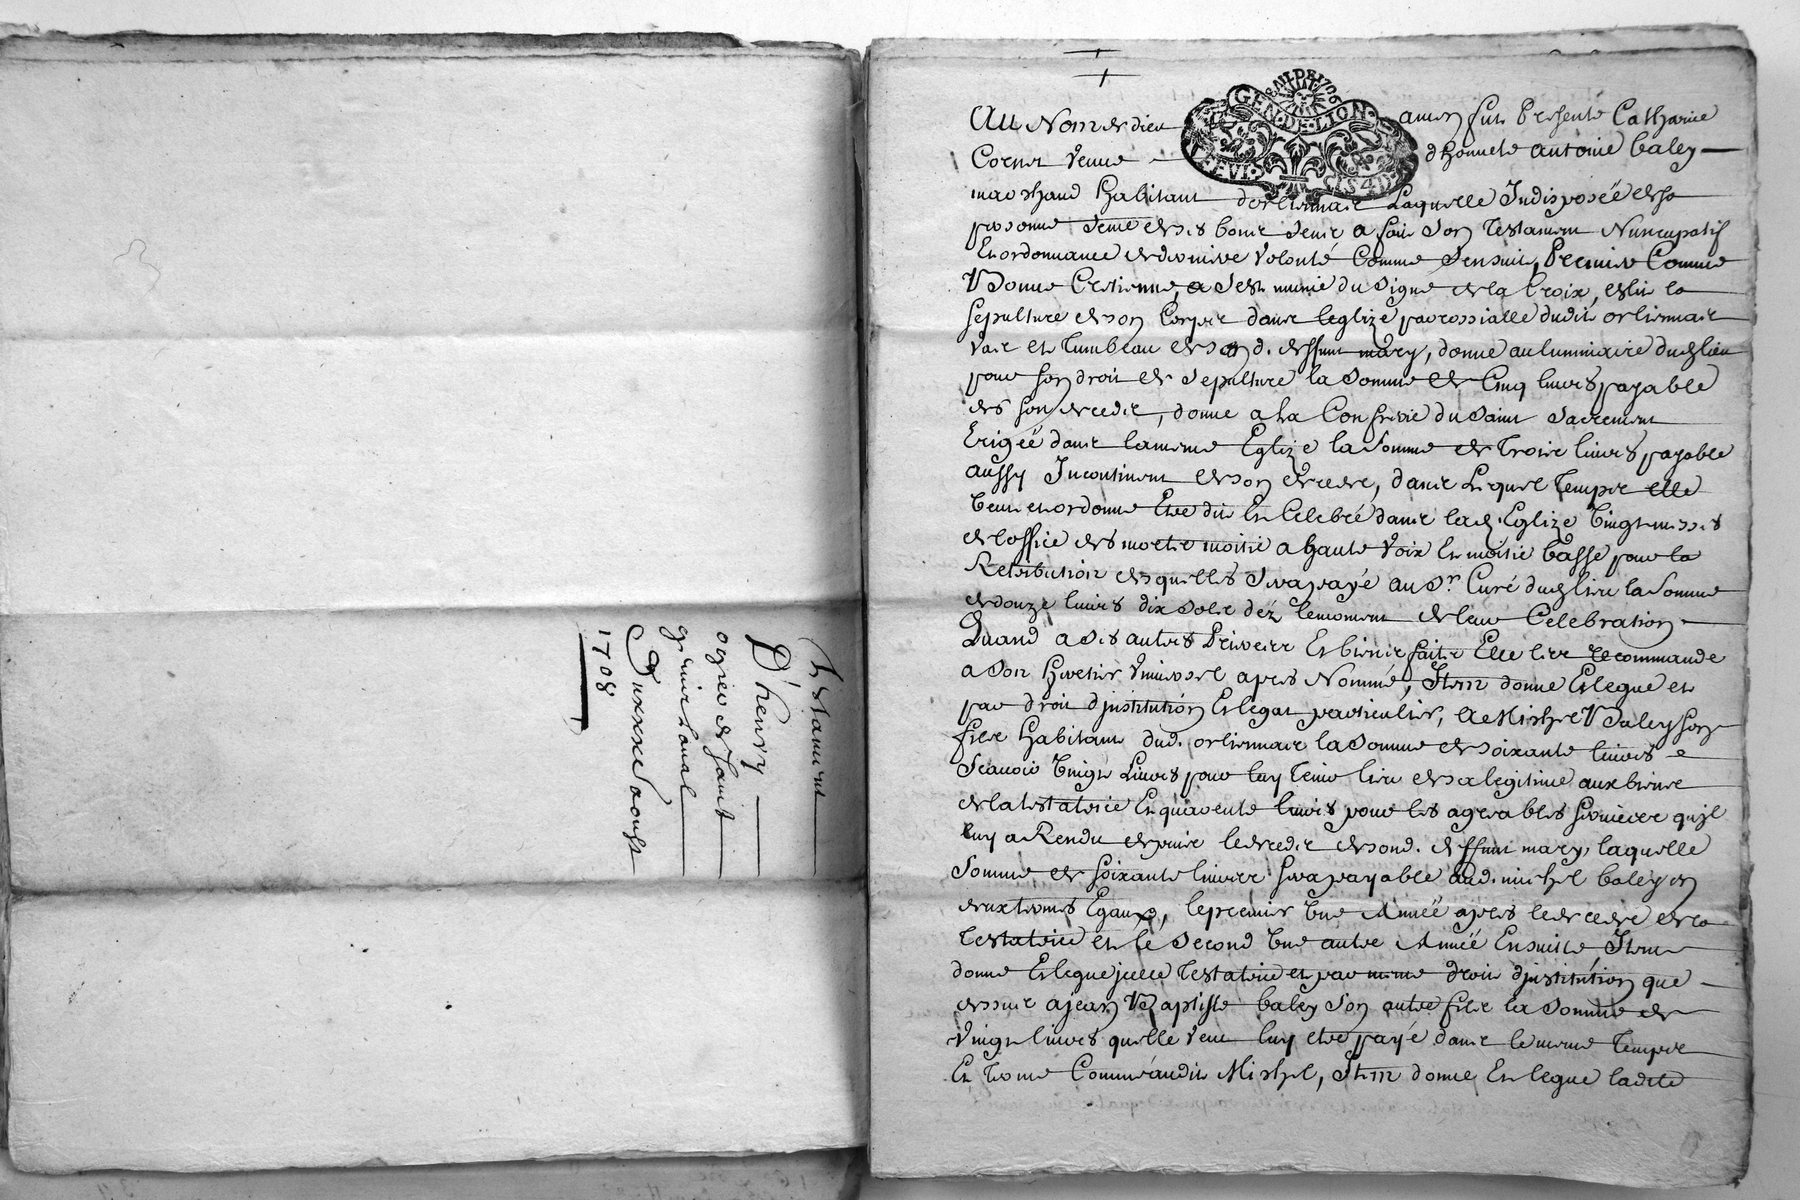 Testament
D'henry
ogier de Saint
genis laval
1708
BAIL DE 1706
GEN. DE. LION
Au Nom de dieu amen fut Presente Catharine
Cornet veuve d'honnete antoine baley
marchand habitant d'orliennair Laquelle Indisposée de sa
personne seine de ses bons sens a fait son testament Nuncupatif
Et ordonnance de derniere volonté Comme s'ensuit, Premier Comme
bonne Cretienne, a s'est munie du signe de la Croix, eslit la
sepulture de son Corps dans leglize parrossialle dudit orliennair
vas et tumbeau de son d. deffunt mary, donne au luminaire dud lieu
pour son droit de sepulture la somme de Cinq livres payable
des son decedz, donne a la Confrerie du Saint Sacrement
Erigée dans la meme Eglize la somme de trois livres payable
aussy Incontinent de son decedz, dans lequel temps elle
veut et ordonne Etre dit Et Celebré dans lad. Eglize vingt messes
de loffice des morts moitie a haute voix Et moitie basse pour la
Retribution desquelles sera payé au Sr. Curé dud lieu la somme
de douze livres dix sols dez lemoment de leur Celebration
Quand a ses autres Prieres Et biens faits Elle les recommande
a son heretier universel apres Nommé, Item donne Et legue et
par droit d'institution Et legat particulier, a Michel Baley son
fils habitant dud. orliennair la somme de soixante livres
scavoir vingt Livres pour luy tenir lieu de sa legitime aux biens
de la testatrice Et quarente livres pour les agreables services quil
luy a Rendu depuis le decedz de sond. deffunt mary, laquelle
somme de soixante livres sera payable aud. michel baley en
deux termes Egaux, le premier une Année apres le decedz de la
testatrice et le second une autre Année Ensuite Item
donne Et legue jcelle testatrice et par meme droit d'institution que
dessus a jean Baptiste baley son autre fils la somme de
vingt livres quelle veut luy etre payé dans le meme temps
Et terme Comme audit Michel, Item donne Et legue ladite